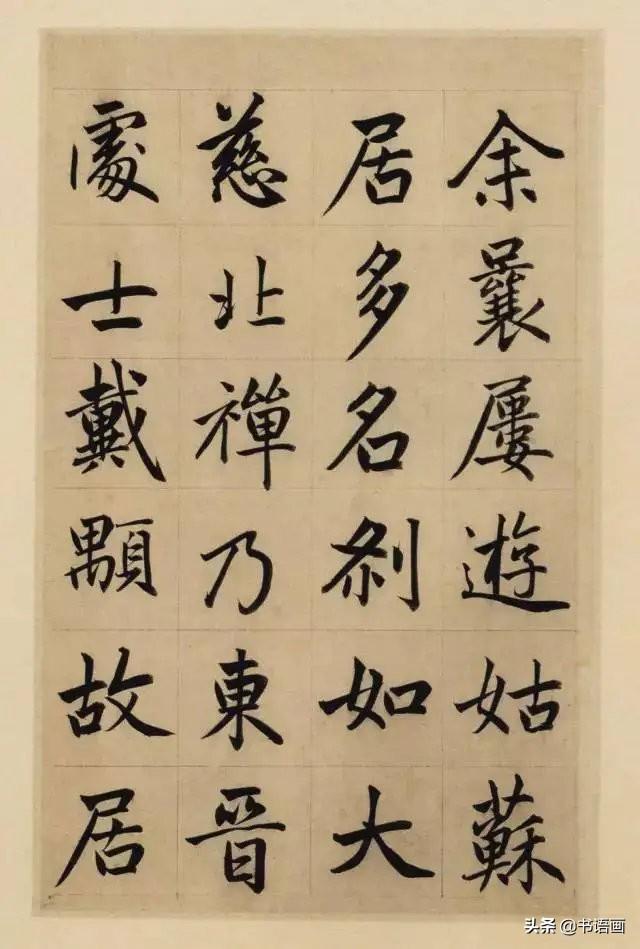 余曩屢遊姑蘇
居多名刹如大
慈北禪乃東晉
處士戴顒故居
头条 @书语画